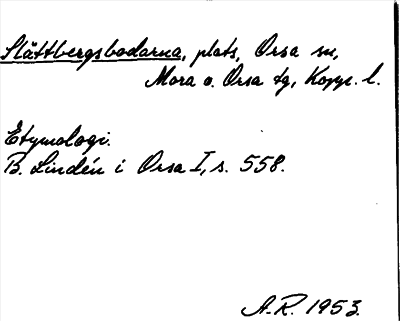 Slättbergsbodarna, plats, Orsa sn,
Mora o. Orsa tg, Kopp. l.
Etymologi.
B. Lindén i Orsa I, s. 558.
A.R. 1953.